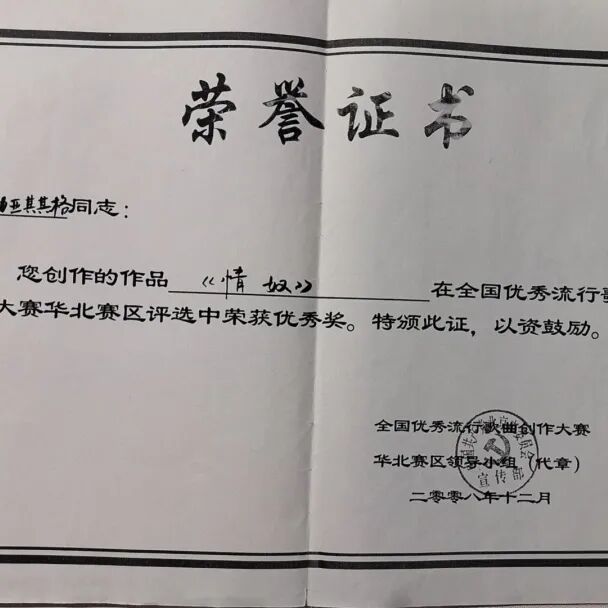 荣誉证书
亚其其格同志：
您创作的作品《情奴》在全国优秀流行歌
大赛华北赛区评选中荣获优秀奖。特颁此证，以资鼓励。
全国优秀流行歌曲创作大赛
华北赛区领导小组（代章）
二零零八年十二月
宣传部